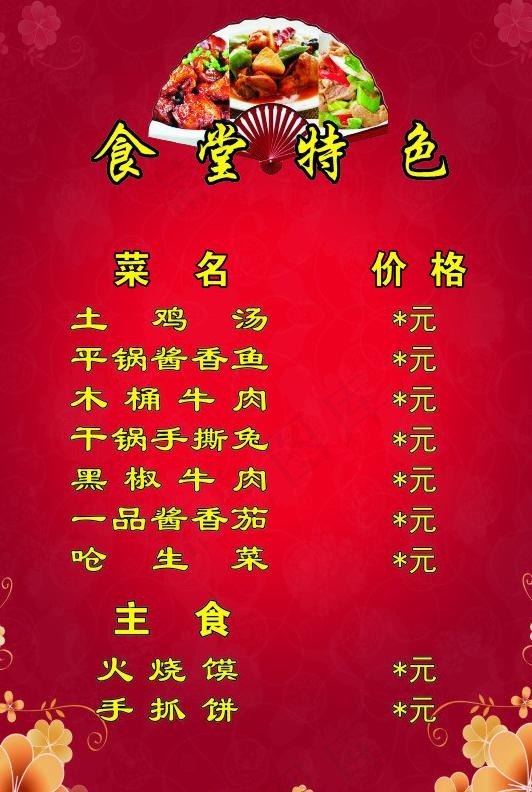 食堂特色
菜名 价格
土鸡汤 *元
平锅酱香鱼 *元
木桶牛肉 *元
干锅手撕兔 *元
黑椒牛肉 *元
一品酱香茄 *元
呛生菜 *元
主食
火烧馍 *元
手抓饼 *元